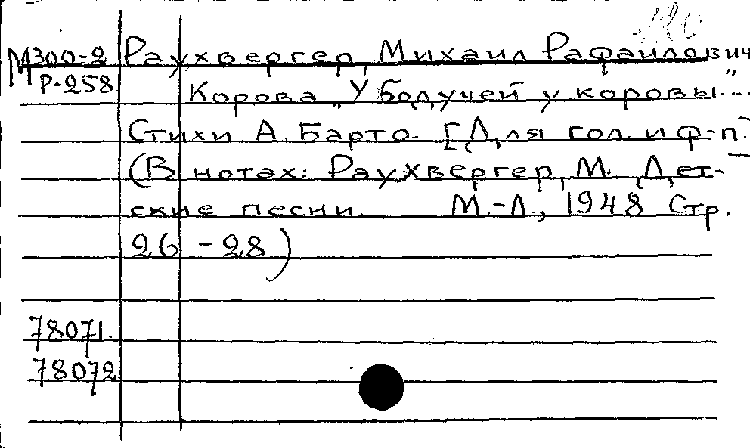 М300-2 Раухвергер, Михаил Рафаилович
Р-258 Корова „У бодучей у коровы..."
Стихи А. Барто. [Для гол. и ф-п.]
(В нотах: Раухвергер, М. Дет-
ские песни. М.-Л., 1948 Стр.
26 - 28)
78071
78072